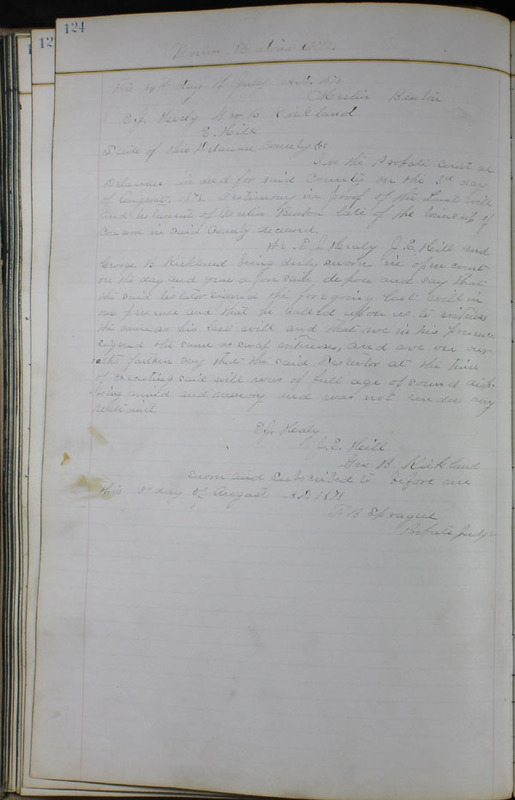 124
12
Will
This day of July A.D. 187
Benton
E.J. Healy Geo B. Kirkland
E. Hill
State of Ohio Delaware County ss
In the Probate Court at
Delaware in and for said County on the 3rd day
of August 187 testimony in proof of the Last Will
and testament of Benton late of the township of
in said County deceased.
We E.J. Healy J.E. Hill and
George B. Kirkland being duly sworn in open court
on the day and year aforesaid depose and say that
the said testator the foregoing last will in
our presence and that he called upon us to witness
the same as his last will and that we in his presence
signed the same as witnesses, and we on our
oath further say that the said Testator at the time
of executing said will was of full age of sound
mind and memory and was not under any
restraint
E.J. Healy
J.E. Hill
Geo B. Kirkland
Sworn and Subscribed to before me
this 3 day of August A.D. 187
B Sprague
Probate Judge